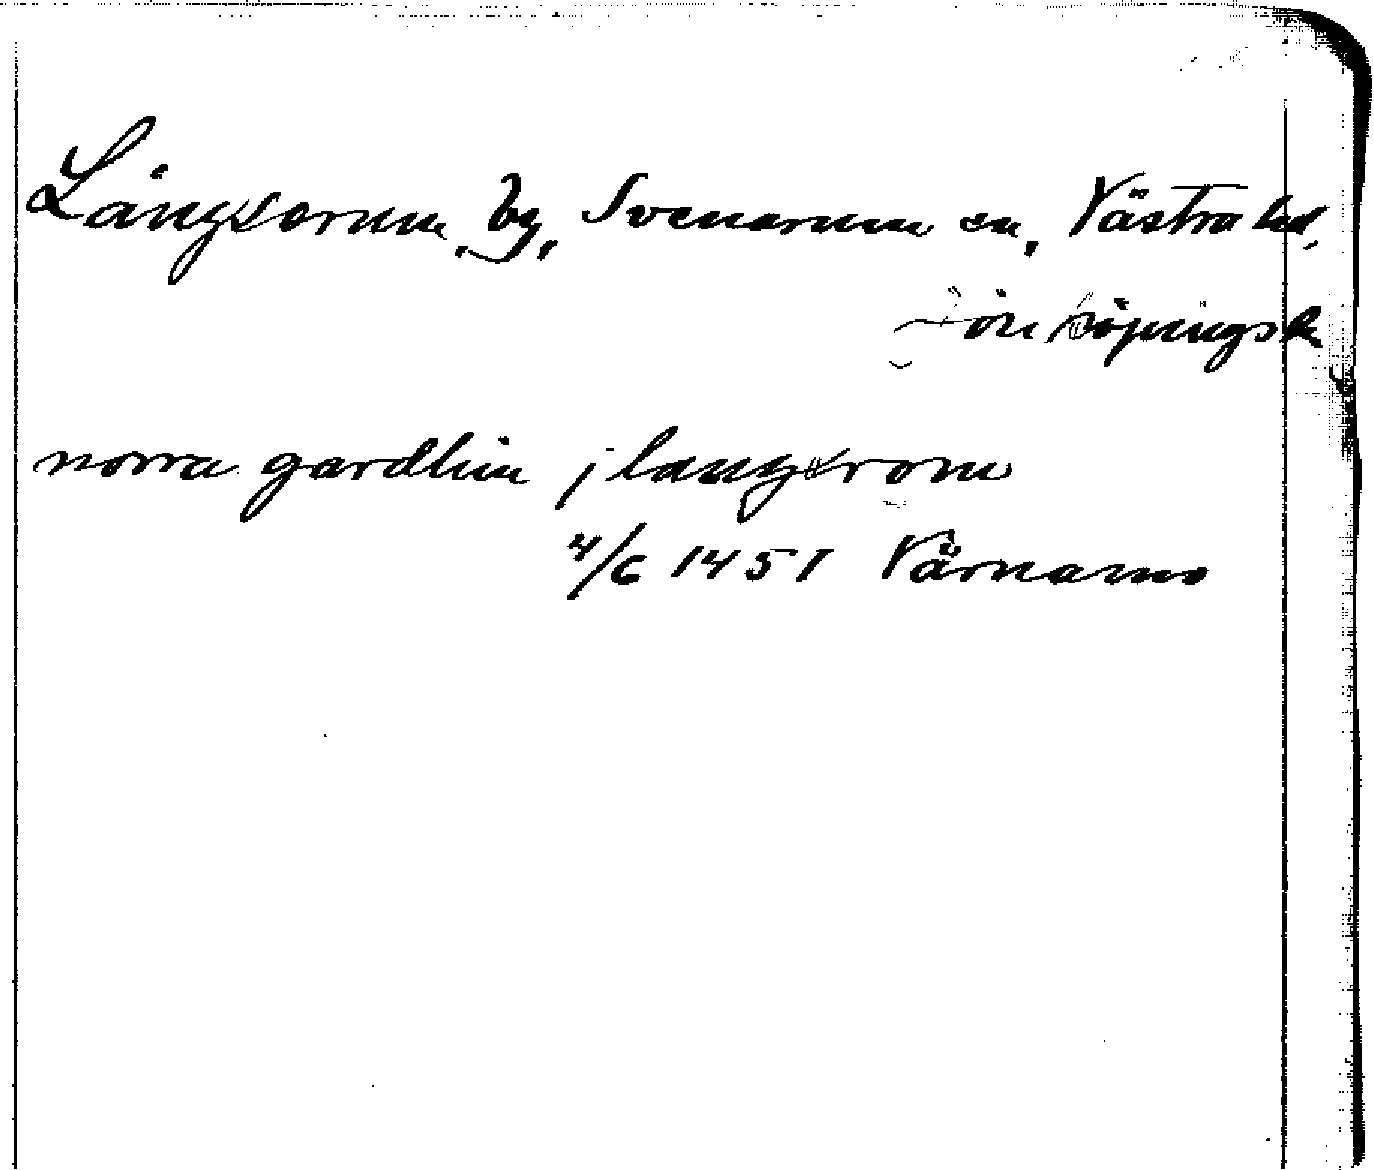 Långserum, by, Svenarum sn, Västra hd,
Jönköpings l
norra gardhin j langxrom
4/6 1451 Värnamo